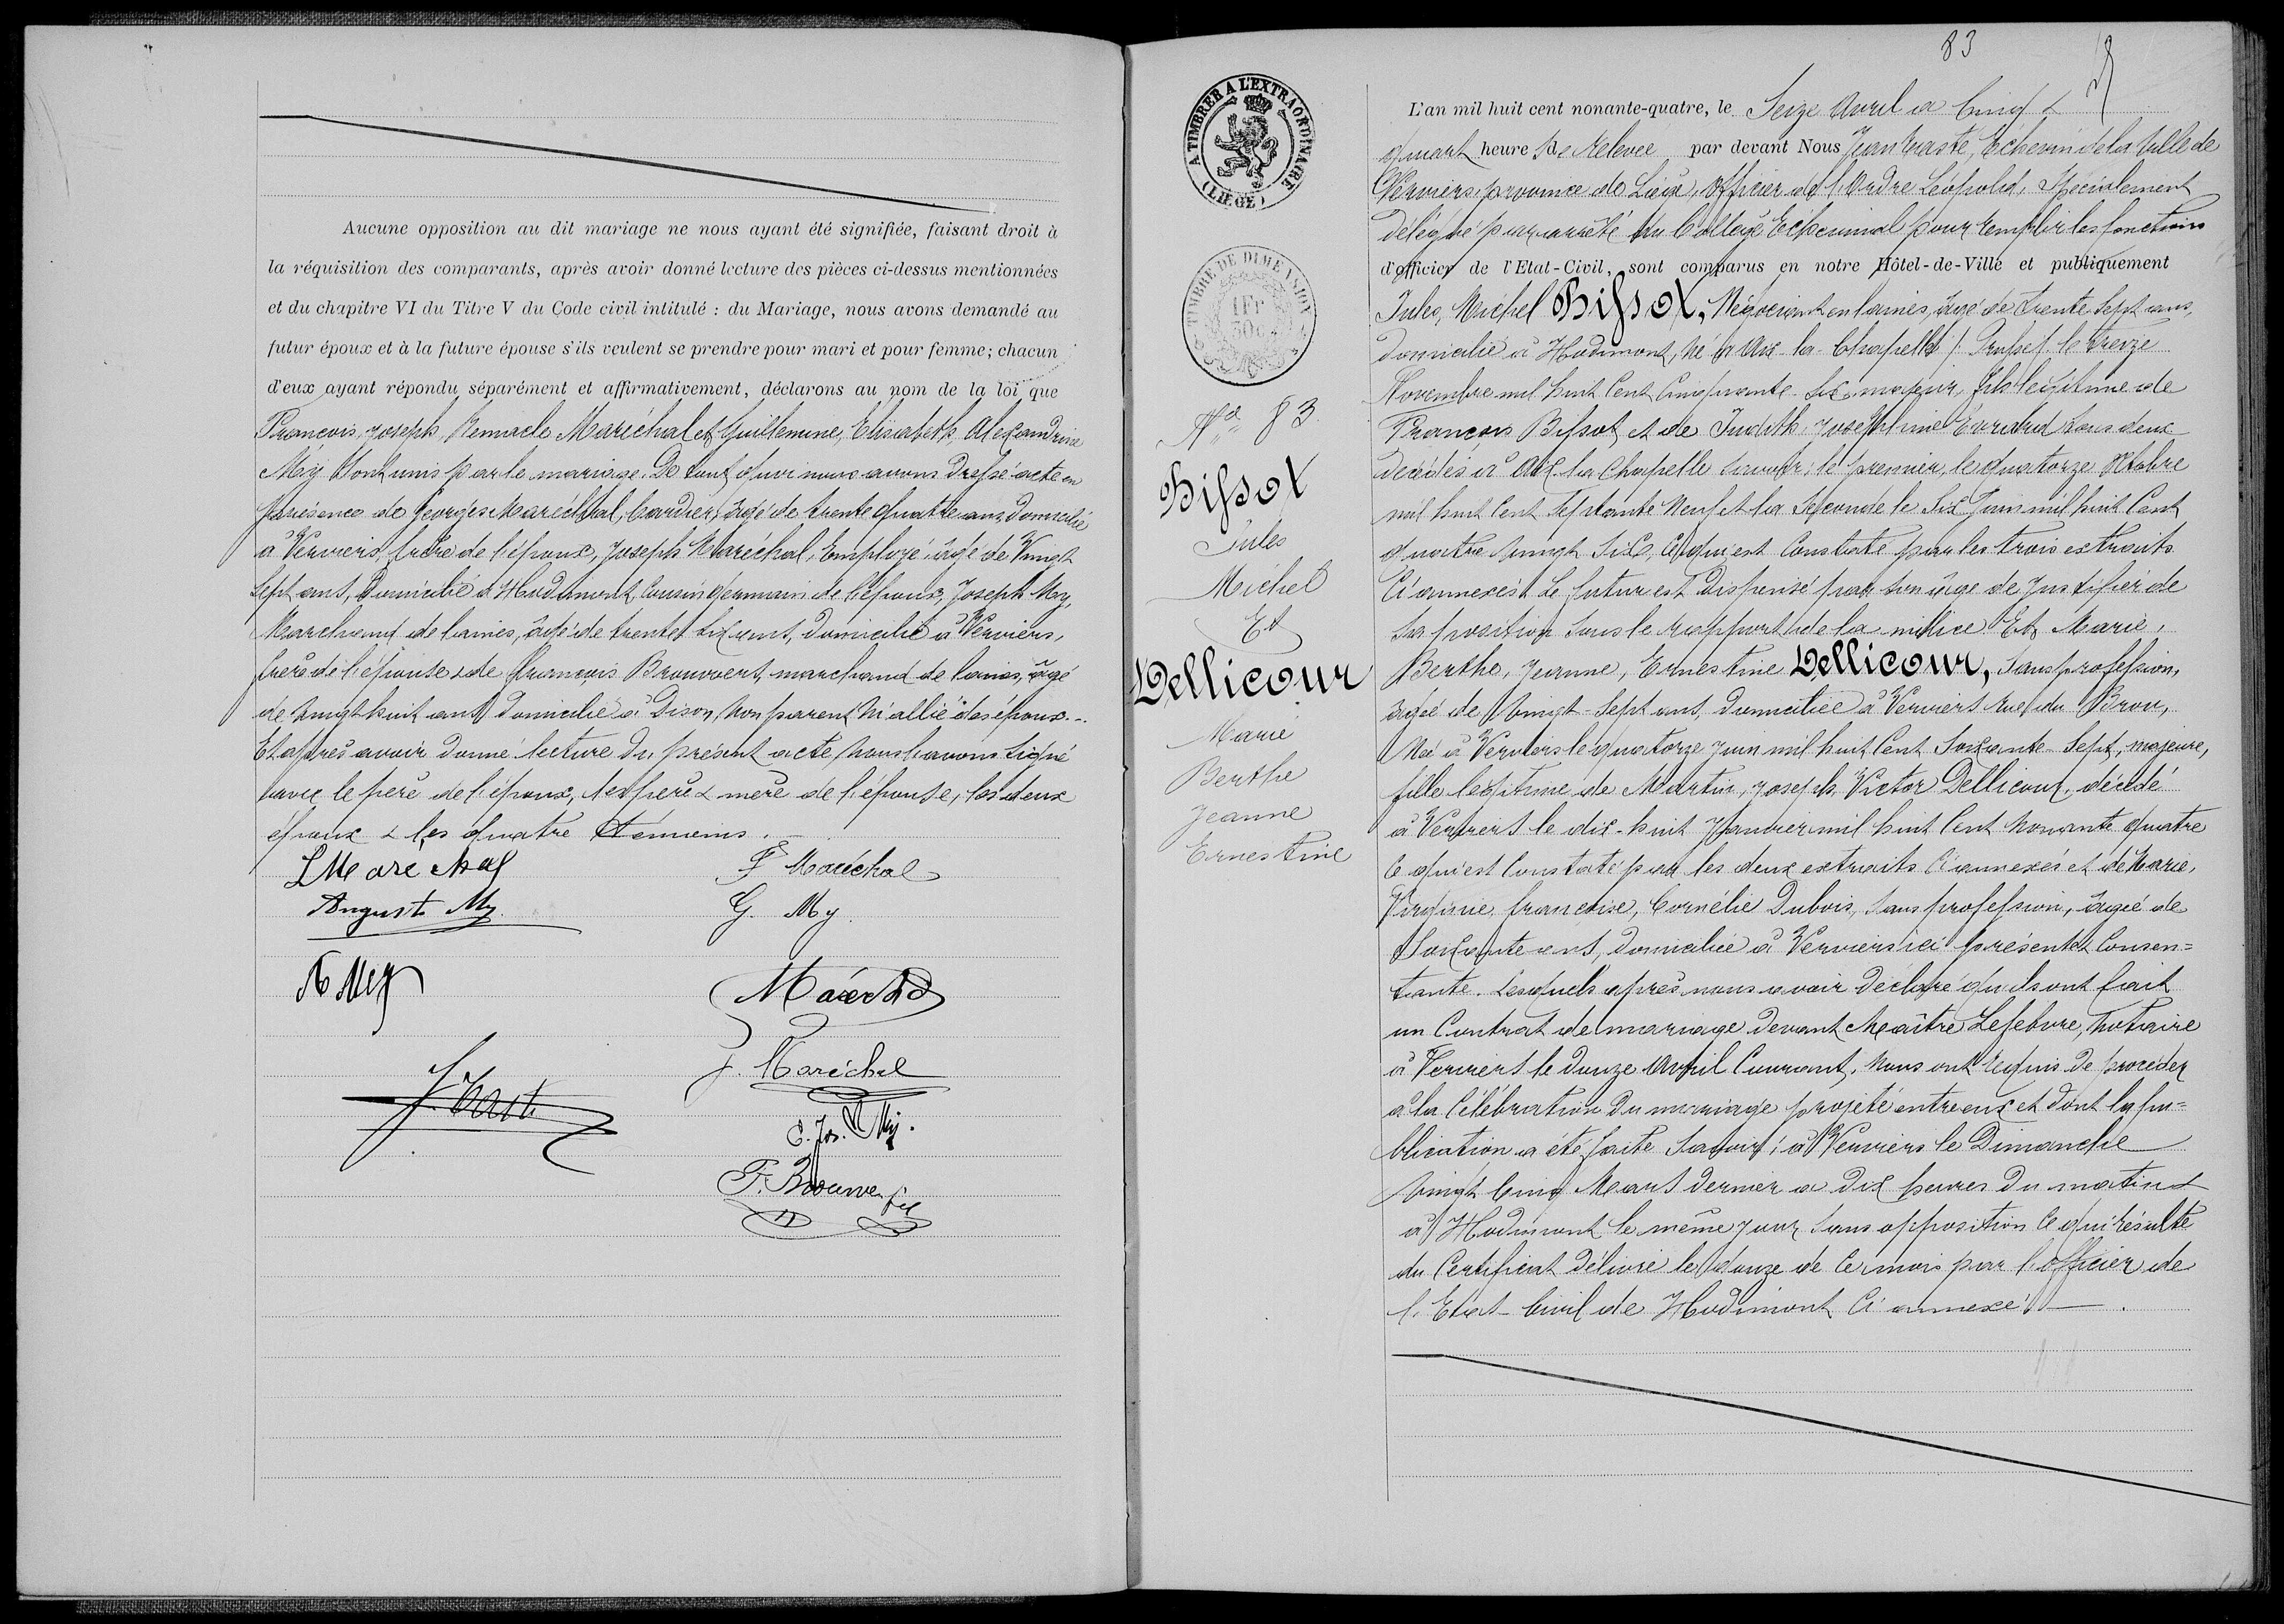 Aucune opposition au dit mariage ne nous ayant été signifiée, faisant droit à
la réquisition des comparants, après avoir donné lecture des pièces ci-dessus mentionnées
et du chapitre VI du Titre V du Code civil intitulé : du Mariage, nous avons demandé au
futur époux et à la future épouse s'ils veulent se prendre pour mari et pour femme; chacun
d'eux ayant répondu séparément et affirmativement, déclarons au nom de la loi que
François, Joseph, Remacle Maréchal et Guillemine, Elisabeth, Alexandrine
Mÿ sont unis par le mariage. De tout quoi nous avons dressé acte en
présence de Georges Maréchal, Cardier, âgé de trente quatre ans, domicilié
à Verviers, frère de l'époux, Joseph Maréchal, Employé âgé de Vingt
Sept ans, Domicilié à Hodimont, cousin germain de l'époux, Joseph My,
Marchand de laines, âgé de trente six ans, domicilié à Verviers,
frère de l'épouse & de François Brouwers, marchand de laines, âgé
de vingt huit ans domicilié à Dison, non parent ni allié des époux.-
Et après avoir donné lecture du présent acte, nous l'avons signé
avec le père de l'époux, les père & mère de l'épouse, les deux
époux & les quatre témoins.
F Maréchal
Auguste My
G. My
Maréchal
J. Maréchal
C. Jos. My.
F. Brouwers fils
83
A TIMBRER A L'EXTRAORDINAIRE
(LIÉGE)
TIMBRE DE DIMENSION
1Fr
50c
N° 83
Bissot
Jules
Michel
Et
Dellicour
Marie
Berthe
Jeanne
Ernestine
L'an mil huit cent nonante-quatre, le Seize Avril à Cinq &
quart heure s de Relevée par devant Nous Jean Haste, Echevin de la Ville de
Verviers, province de Liége, officier de l'Ordre Léopold, Spécialement
délégué par arrêté du Collège Echevinal pour remplir les fonctions
d'officier de l'Etat-Civil, sont comparus en notre Hôtel-de-Ville et publiquement
Jules, Michel Bissot, Négociant en laines, âgé de trente Sept ans,
domicilié à Hodimont, né à Aix-la-Chapelle / Prusse / le treize
Novembre mil huit Cent Cinquante-Six, majeur, fils légitime de
François Bissot et de Judith, Joséphine Evrard tous deux
décédés à Aix la Chapelle savoir; le premier, le quatorze Octobre
mil huit Cent Septante Neuf et la Seconde le Six Juin mil huit Cent
quatre Vingt Six, Ce qui est Constaté par les trois extraits
Ci annexés. Le futur est dispensé par son âge de Justifier de
sa position sous le rapport de la milice. Et Marie,
Berthe, Jeanne, Ernestine Dellicour, Sans profession,
âgée de Vingt-Sept ans, domiciliée à Verviers rue du Brou,
Née à Verviers le quatorze Juin mil huit Cent Soixante-Sept, majeure,
fille légitime de Martin, Joseph, Victor Dellicour, décédé
à Verviers le dix-huit Janvier mil huit Cent Nonante quatre
Ce qui est Constaté par les deux extraits Ci annexés et de Marie,
Virginie, françoise, Cornélie Dubois, Sans profession, âgée de
Soixante ans, domiciliée à Verviers ici présente & Consen=
tante. Lesquels après nous avoir déclaré qu'ils ont fait
un Contrat de mariage devant Maître Lefebvre, Notaire
à Verviers le douze Avril Courant, nous ont requis de procéder
à la Célébration du mariage projeté entre eux et dont la pu=
blication a été faite Savoir; à Verviers le Dimanche
Vingt Cinq Mars dernier à dix heures du matin &
à Hodimont le même jour, Sans opposition Ce qui résulte
du Certificat délivré le douze de Ce mois par l'officier de
l'Etat-Civil de Hodimont Ci annexé.